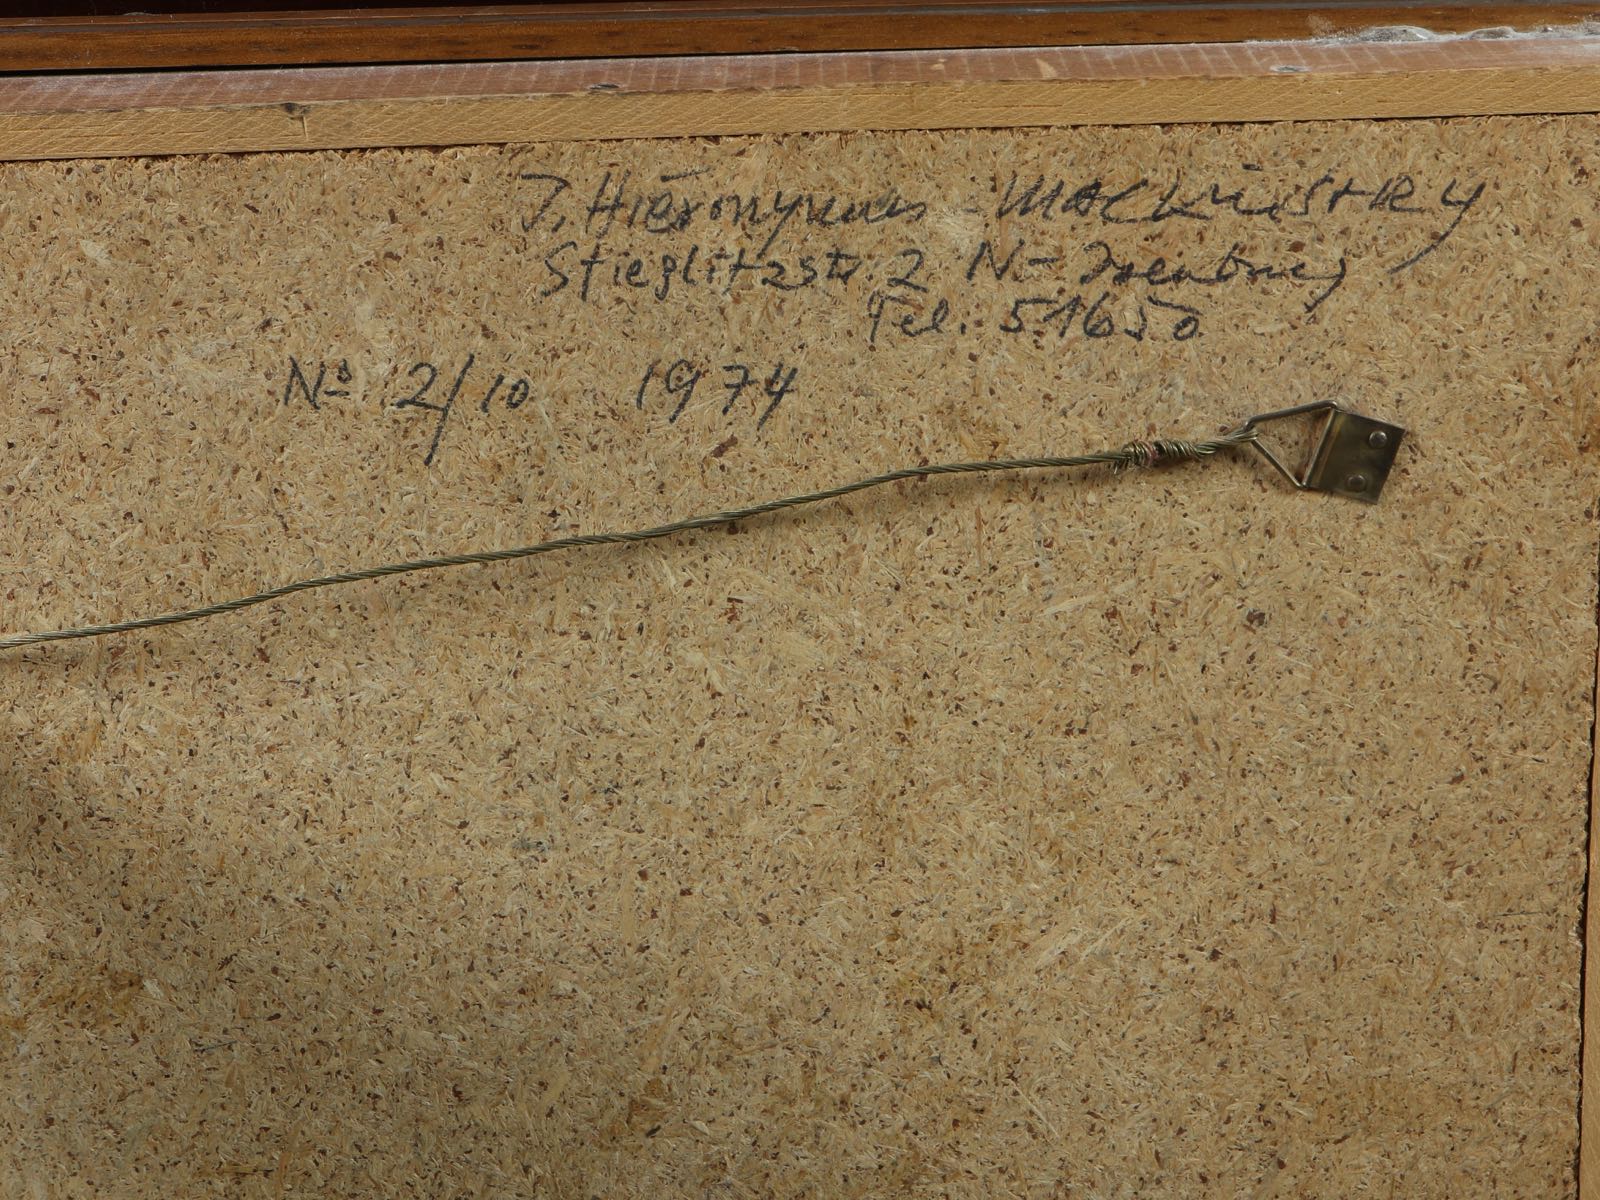 J. Hiëronymus - MACKINSTRY
Stieglitzstr. 2 N-Isenburg
Tel. 51650
No 2/10 1974